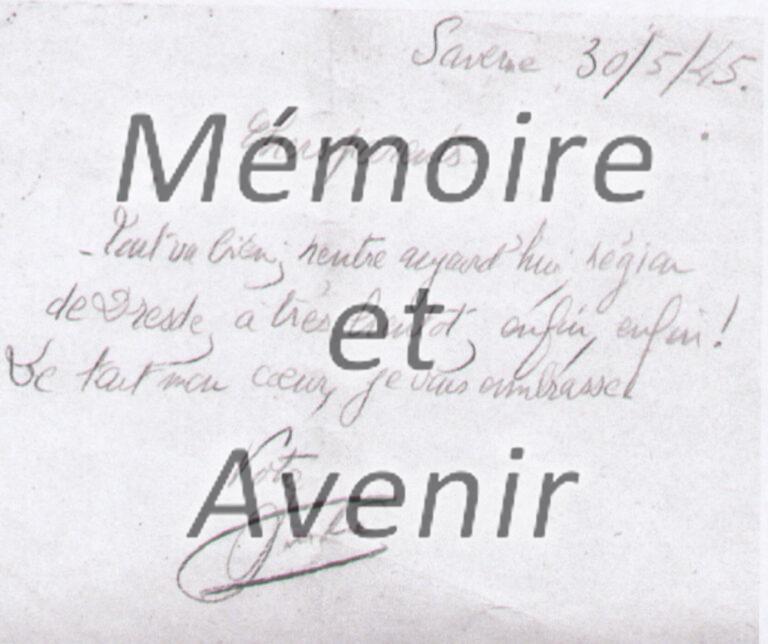 Saverne 30/5/45.
Mémoire
Chers parents
Tout va bien, rentre aujourd'hui région
de Dresde, à très bientôt, enfin, enfin !
et
De tout mon cœur, je vous embrasse
Votre
Avenir